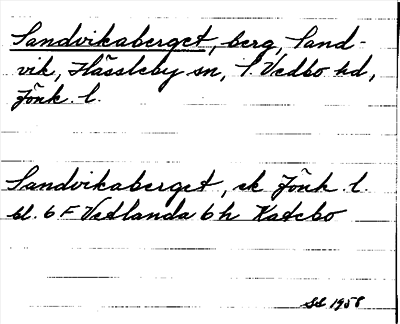 Sandvikaberget, berg, Sand-
vik, Hässleby sn, S. Vedbo hd,
Jönk. l.
Sandvikaberget, ek Jönk. l.
bl. 6 F Vetlanda 6 h Katebo
SS 1958